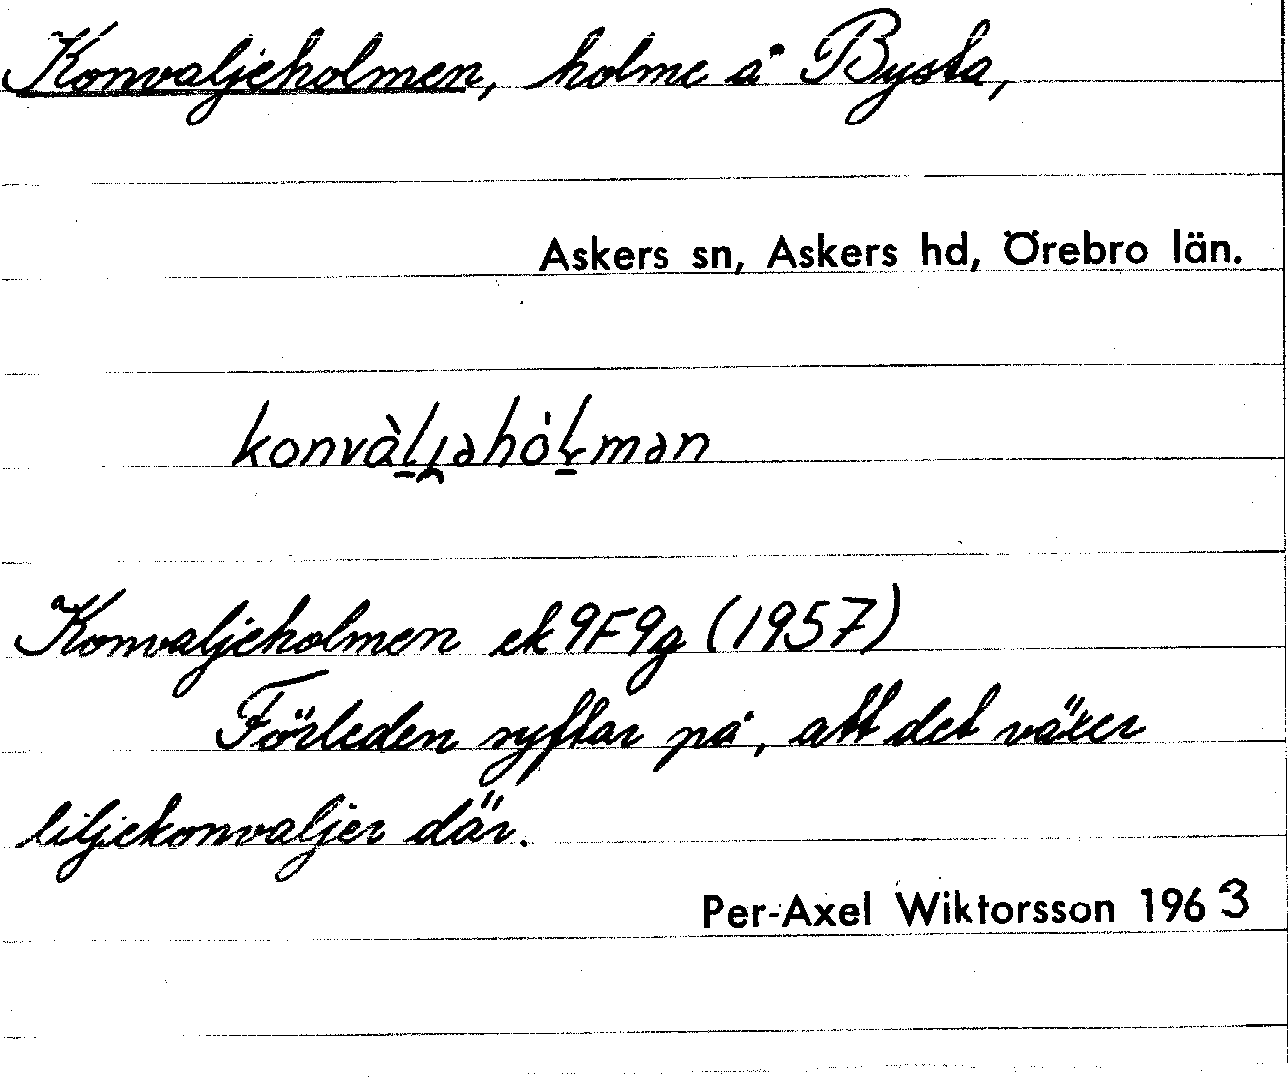 Konvaljeholmen, holme å Bysta,
Askers sn, Askers hd, Örebro län.
konvàl̠i̯əhól̠mən
Konvaljeholmen ek 9F9g (1957)
Förleden syftar på, att det växer
liljekonvaljer där.
Per-Axel Wiktorsson 1963